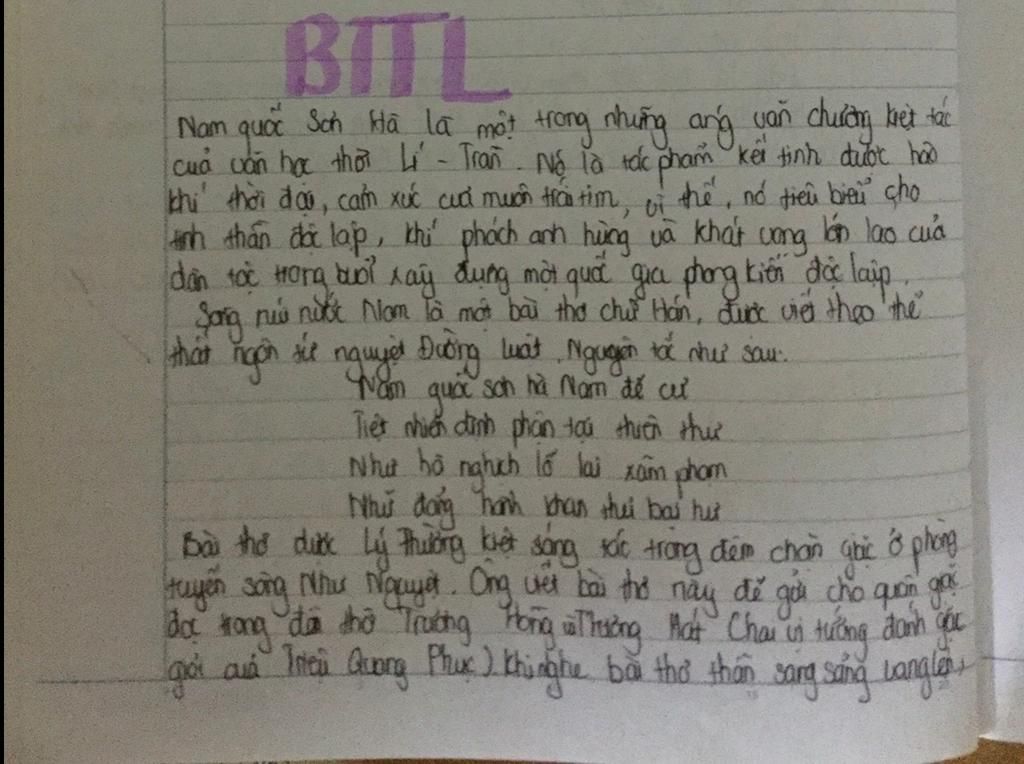 BTTL
Nam quốc Sơn Hà là một trong những áng văn chương kiệt tác
của văn học thời Lí - Trần. Nó là tác phẩm kết tinh được hào
khí thời đại, cảm xúc của muôn trái tim, vì thế, nó tiêu biểu cho
tinh thần độc lập, khí phách anh hùng và khát vọng lớn lao của
dân tộc trong buổi xây dựng một quốc gia phong kiến độc lập.
Sông núi nước Nam là một bài thơ chữ Hán, được viết theo thể
thất ngôn tứ nguyệt Đường luật. Nguyên tác như sau:
Nam quốc sơn hà Nam đế cư
Tiệt nhiên định phận tại thiên thư
Như hà nghịch lỗ lai xâm phạm
Nhữ đẳng hành khan thủ bại hư
Bài thơ được Lý Thường Kiệt sáng tác trong đêm chặn giặc ở phòng
tuyến sông Như Nguyệt. Ông viết bài thơ này để gửi cho quân giặc
đọc trong đền thờ Trương Hống và Trương Hát (hai vị tướng đánh giặc
giỏi của Triệu Quang Phục). Khi nghe bài thơ thần sang sảng vang lên,